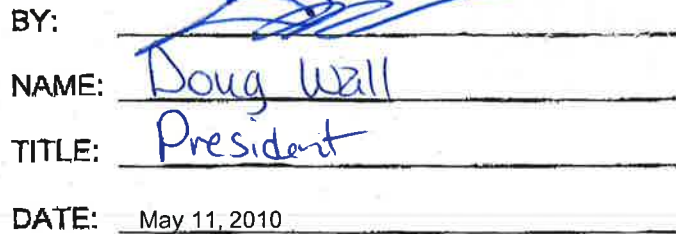 BY:
NAME: Doug Wall
TITLE: President
DATE: May 11, 2010